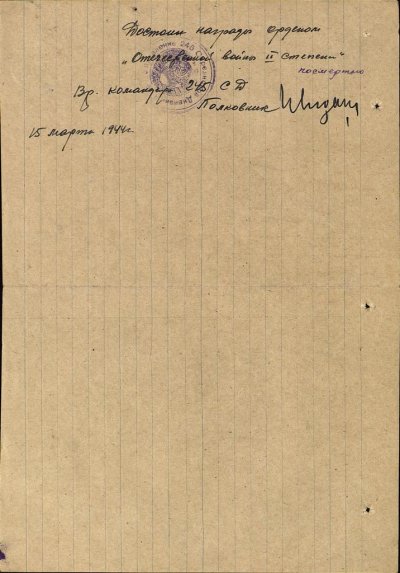 Достоин награды орденом
„Отечественной войны II степени"
посмертно
Вр. командир 245 СД
Полковник
15 марта 1944г.